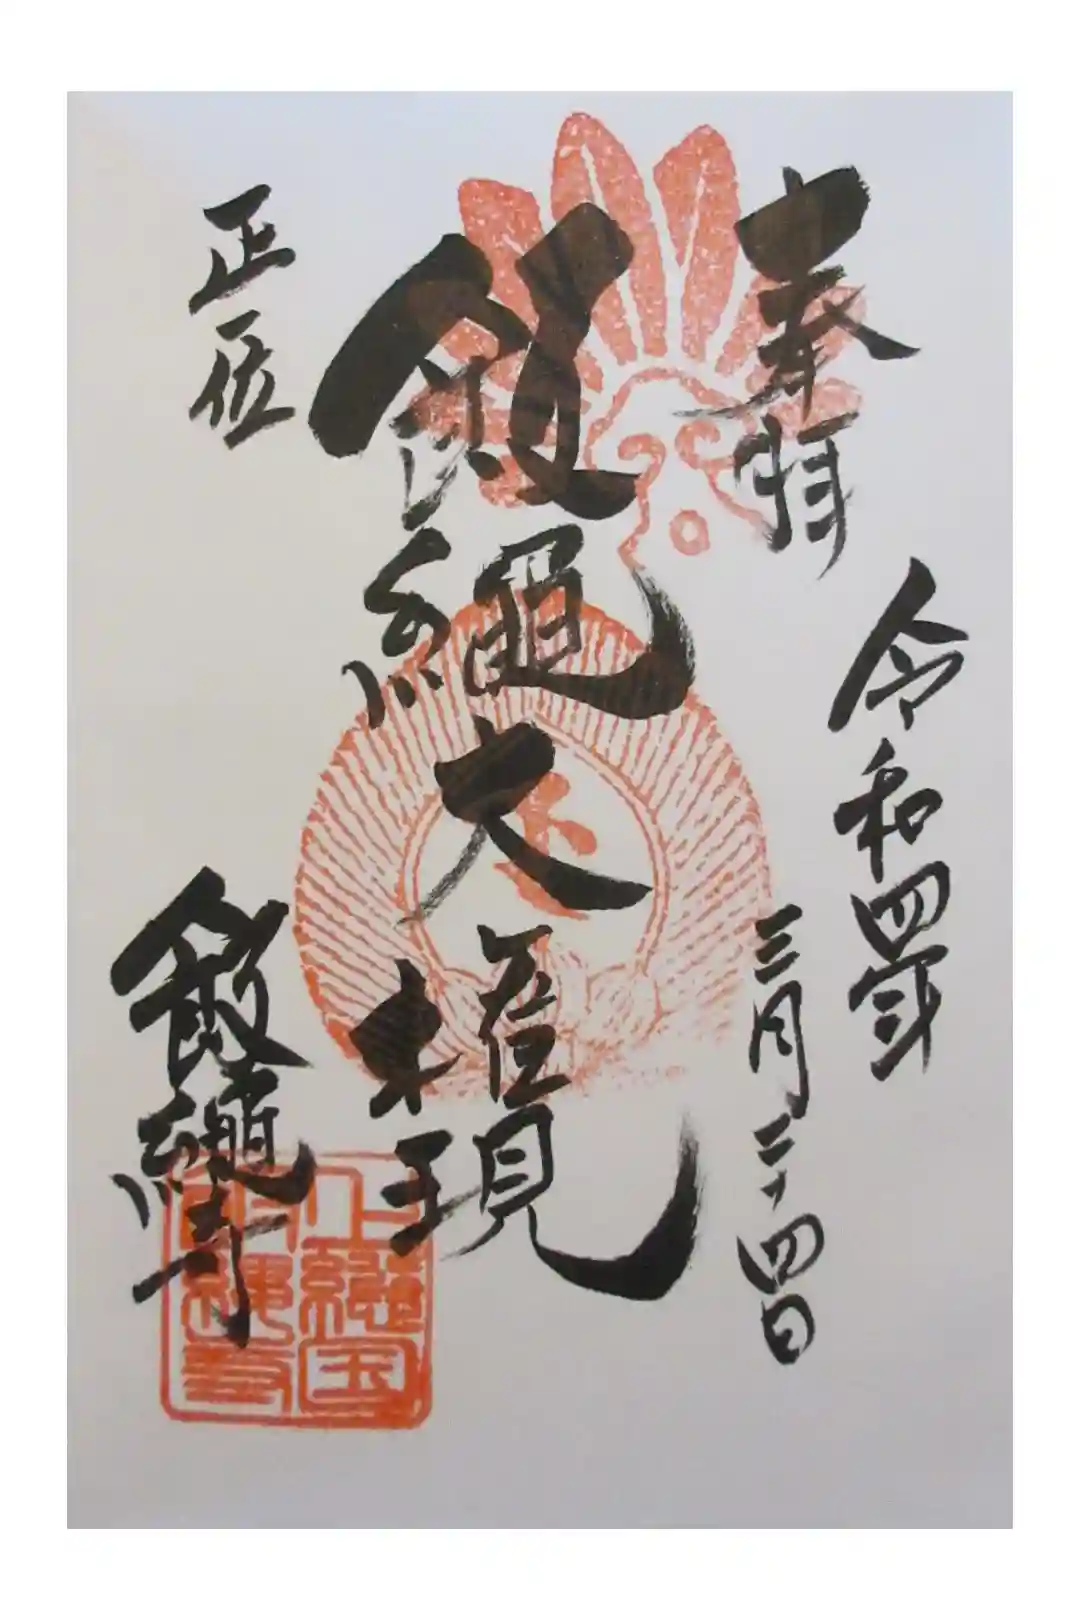 奉拝
令和四年
三月二十四日
飯縄大権現
正位
飯縄寺
上総国
飯縄寺